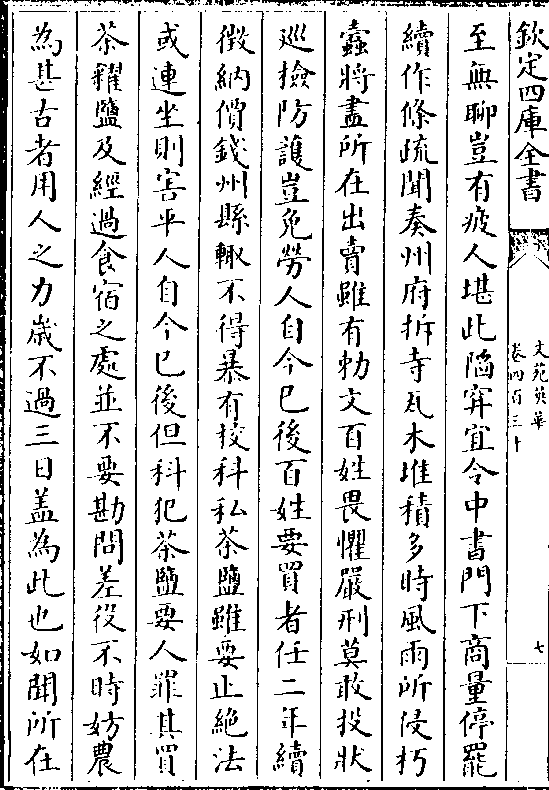 欽定四庫全書
文苑英華
卷四百三十
七
至無聊豈有疲人堪此陷穽宜令中書門下商量停罷
續作條疏聞奏州府拆寺瓦木堆積多時風雨所侵朽
蠹將盡所在出賣雖有勅文百姓畏懼嚴刑莫敢投狀
巡撿防護豈免勞人自今已後百姓要買者任二年續
徴納價錢州縣輙不得暴有挍科私茶鹽雖要止絶法
或連坐則害平人自今已後但科犯茶鹽要人罪其買
茶糶鹽及經過食宿之處並不要勘問差役不時妨農
為甚古者用人之力嵗不過三日盖為此也如聞所在